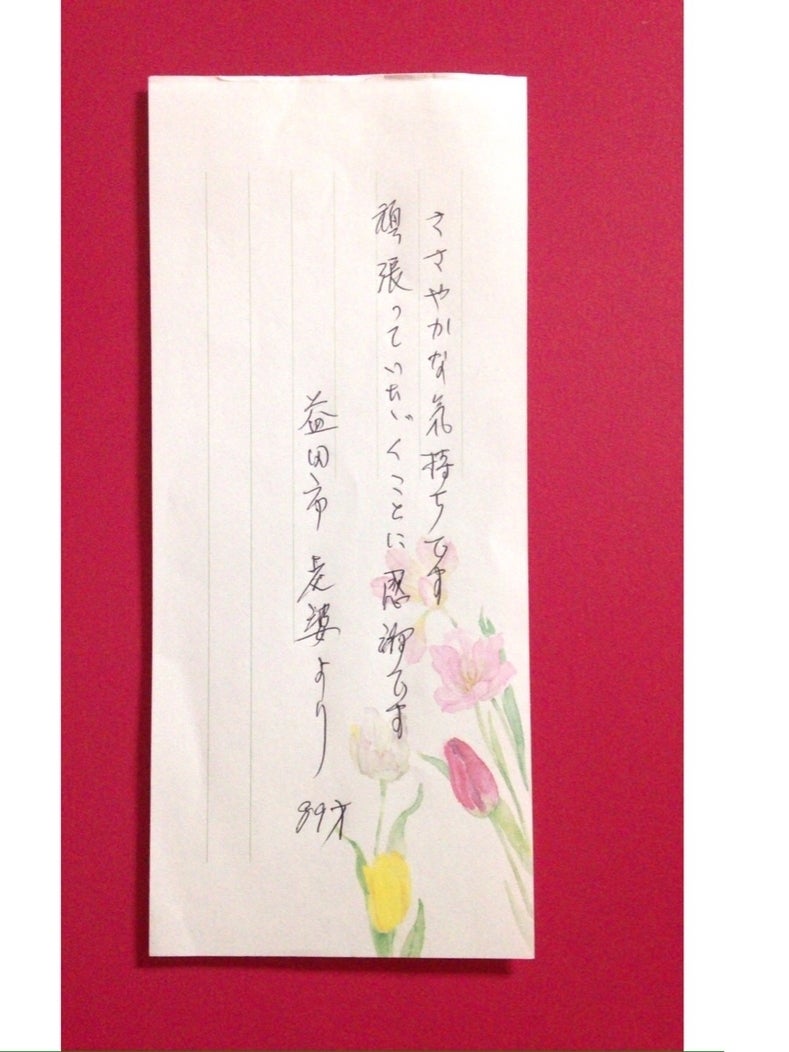 ささやかな気持ちです
頑張っていたゞくことに感謝です
益田市 老婆より 89才